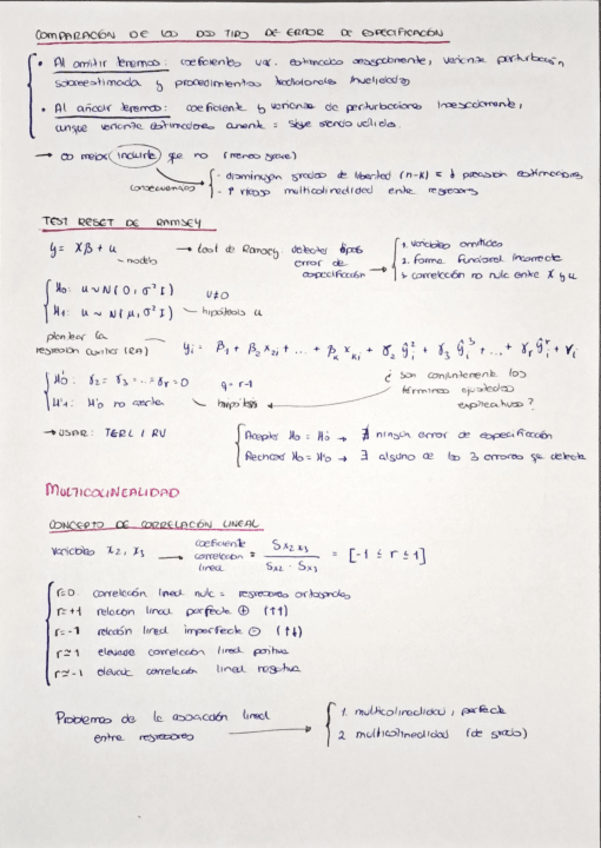 COMPARACIÓN DE LOS DOS TIPO DE ERROR DE ESPECIFICACIÓN
• Al omitir tenemos: coeficientes var. estimados sesgadamente, varianza perturbación
sobreestimada y procedimientos tradicionales invalidados
• Al añadir tenemos: coeficiente y varianza de perturbaciones insesgadamente,
aunque varianza estimadores aumente = sigue siendo válida.
→ es mejor incluirla que no (menos grave)
consecuencias
- disminuyen grados de libertad (n-k) = ↓ precisión estimaciones
- ↑ riesgo multicolinealidad entre regresores
TEST RESET DE RAMSEY
y = Xβ + u → test de Ramsey: detectar tipos
- modelo
error de
especificación →
1. variables omitidas
2. forma funcional incorrecta
3. correlación no nula entre X y u
H₀: u ~ N(0, σ²I) μ≠0
H₁: u ~ N(μ, σ²I) - hipótesis u
plantear la
regresión auxiliar (RA)
yᵢ = β₁ + β₂ x₂ᵢ + ... + βₖ xₖᵢ + γ₂ ŷᵢ² + γ₃ ŷᵢ³ + ... + γᵣ ŷᵢʳ + vᵢ
H'₀: γ₂ = γ₃ = ... = γᵣ = 0 q = r-1
H'₁: H'₀ no cierta - hipótesis
¿ son conjuntamente los
términos ajustados
explicativos?
→ USAR: TERL / RV
Aceptar H₀ = H'₀ → ∄ ningún error de especificación
Rechazar H₀ = H'₀ → ∃ alguno de los 3 errores que detecta
MULTICOLINEALIDAD
CONCEPTO DE CORRELACIÓN LINEAL
Variables x₂, x₃ → coeficiente correlación lineal = Sx₂x₃ / Sx₂ · Sx₃ = [-1 ≤ r ≤ 1]
r=0 correlación lineal nula = regresores ortogonales
r=+1 relación lineal perfecta ⊕ (↑↑)
r=-1 relación lineal imperfecta ⊖ (↑↓)
r≃1 elevada correlación lineal positiva
r≃-1 elevada correlación lineal negativa
Problemas de la asociación lineal
entre regresores →
1. multicolinealidad, perfecta
2. multicolinealidad (de grado)